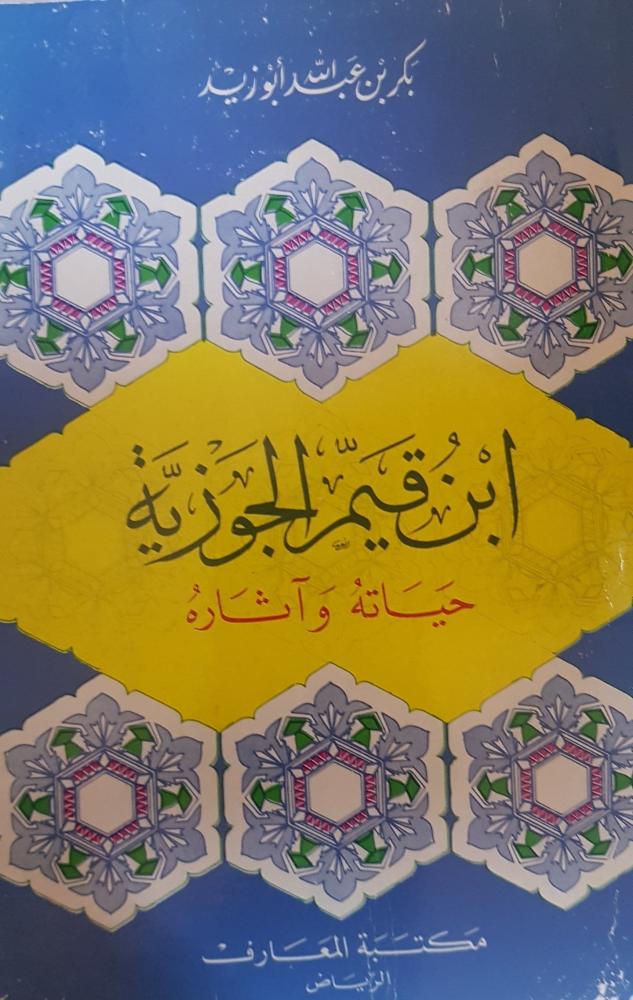 بكر بن عبد الله أبو زيد
ابْن قَيِّم الجَوْزِيَّة
حَيَاتهُ وَآثَارهُ
مكتبة المعارف
الرياض